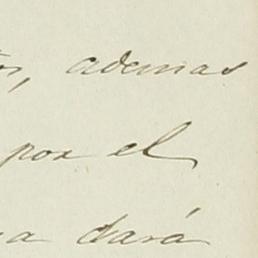 ademas
por el
dará